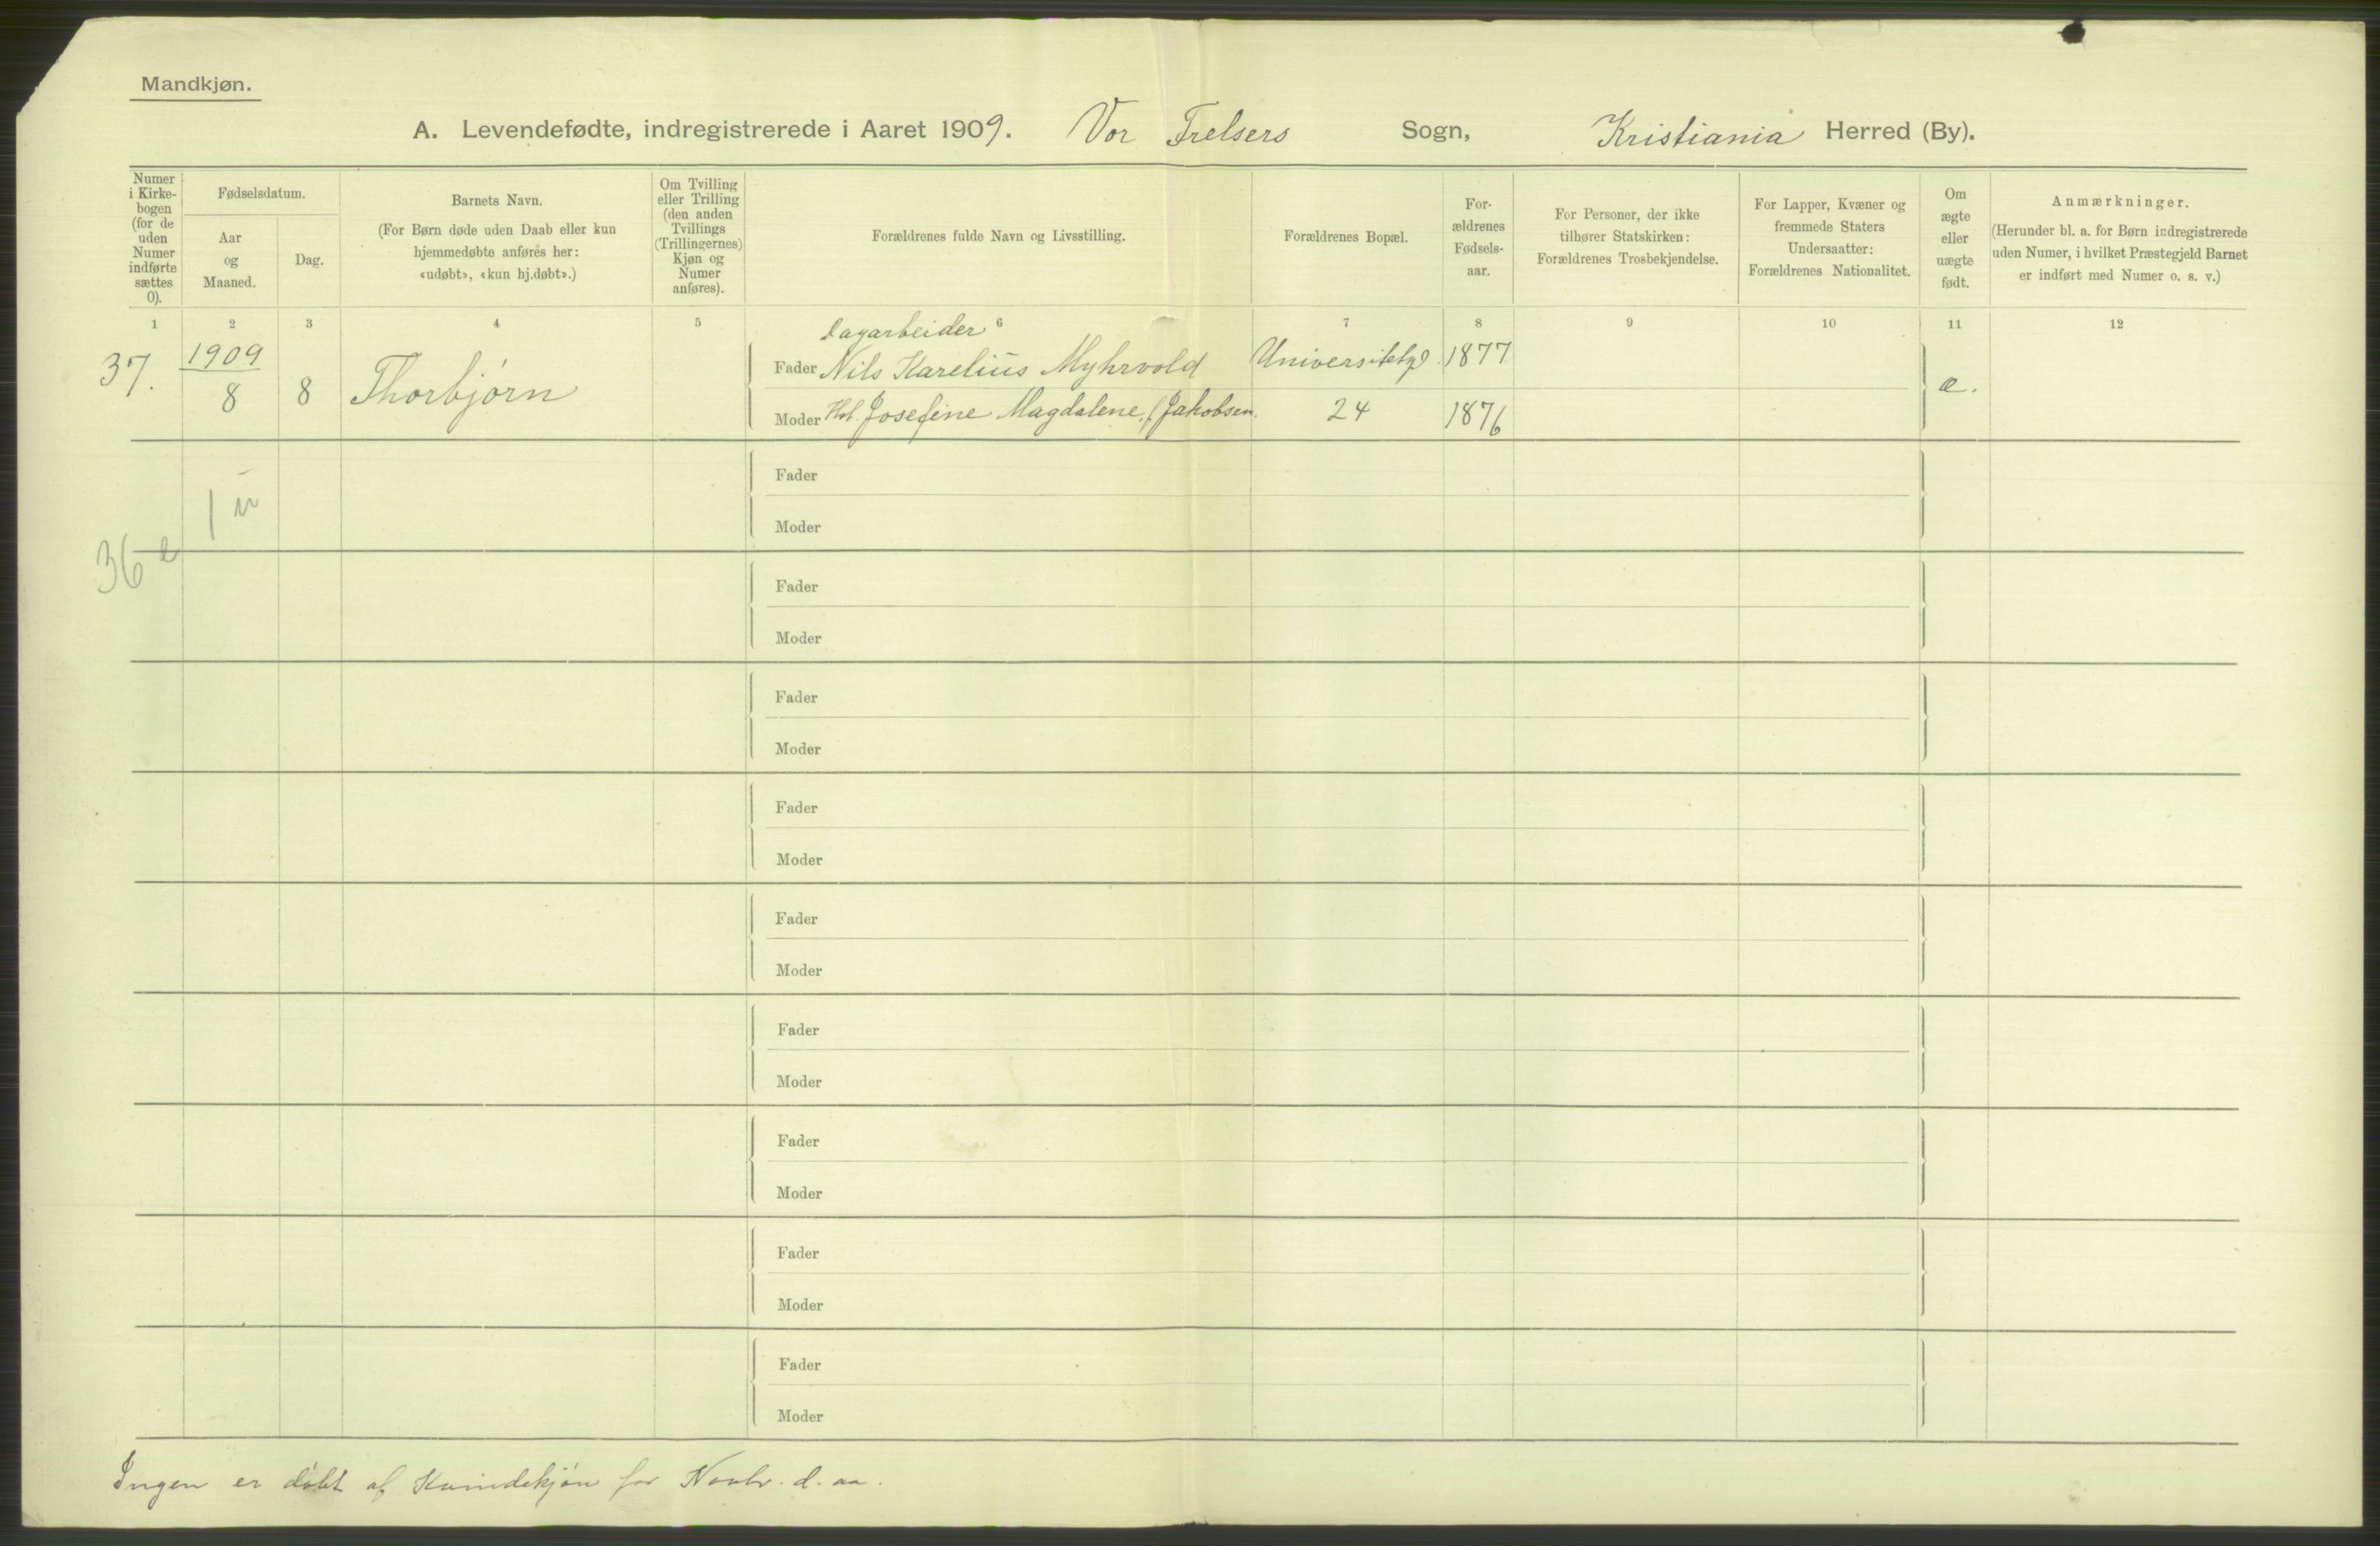 Mandkjøn.
A. Levendefødte, indregistrerede i Aaret 1909. Vor Frelsers Sogn, Kristiania Herred (By).
Numer i Kirke-bogen (for de uden Numer indførte sættes 0).
Fødselsdatum.
Aar og Maaned.
Dag.
Barnets Navn.
(For Børn døde uden Daab eller kun
hjemmedøbte anføres her:
«udøbt», «kun hj.døbt».)
Om Tvilling
eller Trilling
(den anden
Tvillings
(Trillingernes)
Kjøn og
Numer
anføres).
Forældrenes fulde Navn og Livsstilling.
Forældrenes Bopæl.
For-
ældrenes
Fødsels-
aar.
For Personer, der ikke
tilhører Statskirken:
Forældrenes Trosbekjendelse.
For Lapper, Kvæner og
fremmede Staters
Undersaatter:
Forældrenes Nationalitet.
Om
ægte
eller
uægte
født.
Anmærkninger.
(Herunder bl. a. for Børn indregistrerede
uden Numer, i hvilket Præstegjeld Barnet
er indført med Numer o. s. v.)
1 2 3 4 5 6 7 8 9 10 11 12
Dagarbeider
37. 1909 Fader Nils Karelius Myhrvold Universitetsgd. 1877
8 8 Thorbjørn æ.
Moder Hst. Josefine Magdalene, f. Jakobsen. 24 1876
Fader
1 u
Moder
36 e
Fader
Moder
Fader
Moder
Fader
Moder
Fader
Moder
Fader
Moder
Fader
Moder
Fader
Moder
Fader
Moder
Ingen er døbt af Kvindekjøn for Novbr. d. aa.